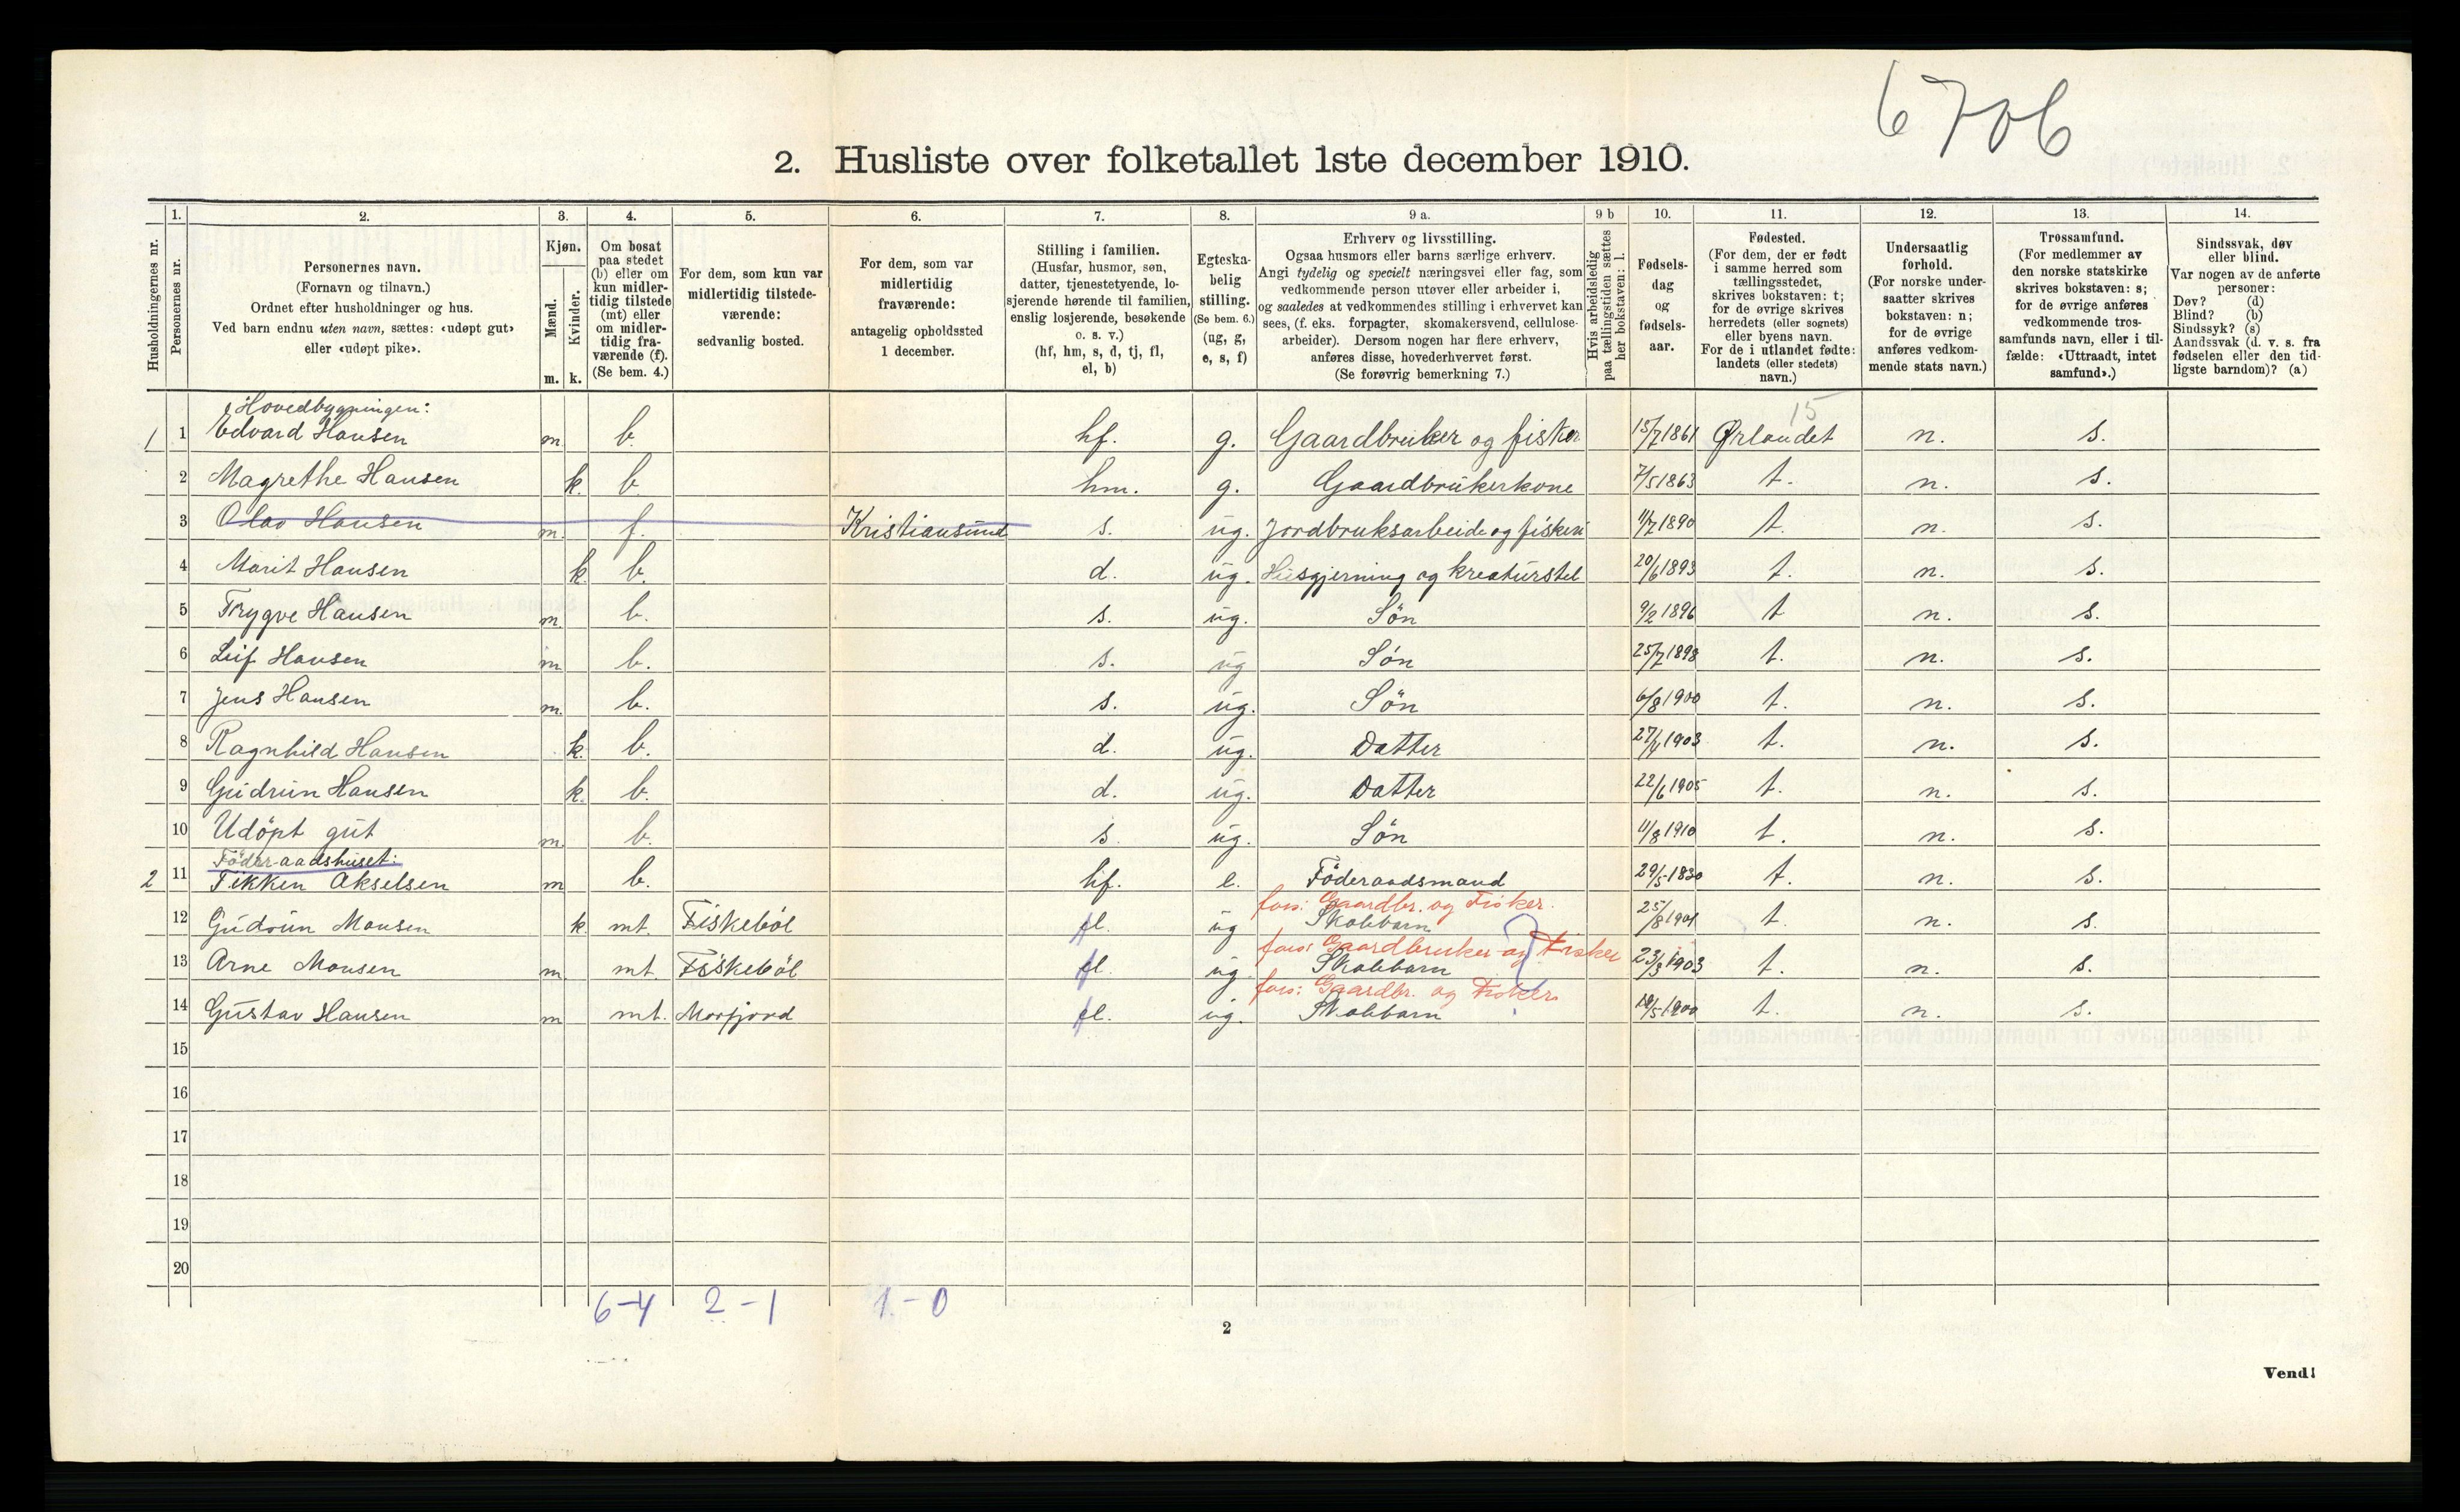 6706
2. Husliste over folketallet 1ste december 1910.
Husholdningernes nr.
1.
Personernes nr.
2.
Personernes navn.
(Fornavn og tilnavn.)
Ordnet efter husholdninger og hus.
Ved barn endnu uten navn, sættes: «udøpt gut»
eller «udøpt pike».
3.
Kjøn.
Mænd.
Kvinder.
m. k.
4.
Om bosat
paa stedet
(b) eller om
kun midler-
tidig tilstede
(mt) eller
om midler-
tidig fra-
værende (f).
(Se bem. 4.)
5.
For dem, som kun var
midlertidig tilstede-
værende:
sedvanlig bosted.
6.
For dem, som var
midlertidig
fraværende:
antagelig opholdssted
1 december.
7.
Stilling i familien.
(Husfar, husmor, søn,
datter, tjenestetyende, lo-
sjerende hørende til familien,
enslig losjerende, besøkende
o. s. v.)
(hf, hm, s, d, tj, fl,
el, b)
8.
Egteska-
belig
stilling.
(Se bem. 6.)
(ug, g,
e, s, f)
9 a.
Erhverv og livsstilling.
Ogsaa husmors eller barns særlige erhverv.
Angi tydelig og specielt næringsvei eller fag, som
vedkommende person utøver eller arbeider i,
og saaledes at vedkommendes stilling i erhvervet kan
sees, (f. eks. forpagter, skomakersvend, cellulose-
arbeider). Dersom nogen har flere erhverv,
anføres disse, hovederhvervet først.
(Se forøvrig bemerkning 7.)
9 b
Hvis arbeidsledig
paa tællingstiden sættes
her bokstaven: l.
10.
Fødsels-
dag
og
fødsels-
aar.
11.
Fødested.
(For dem, der er født
i samme herred som
tællingsstedet,
skrives bokstaven: t;
for de øvrige skrives
herredets (eller sognets)
eller byens navn.
For de i utlandet fødte:
landets (eller stedets)
navn.)
12.
Undersaatlig
forhold.
(For norske under-
saatter skrives
bokstaven: n;
for de øvrige
anføres vedkom-
mende stats navn.)
13.
Trossamfund.
(For medlemmer av
den norske statskirke
skrives bokstaven: s;
for de øvrige anføres
vedkommende tros-
samfunds navn, eller i til-
fælde: «Uttraadt, intet
samfund».)
14.
Sindssvak, døv
eller blind.
Var nogen av de anførte
personer:
Døv? (d)
Blind? (b)
Sindssyk? (s)
Aandssvak (d. v. s. fra
fødselen eller den tid-
ligste barndom)? (a)
Hovedbygningen: 15
1 1 Edvard Hansen m b. hf. g. Gaardbruker og fisker 15/7 1861 Ørlandet n. s.
2 Magrethe Hansen k. b. hm. g. Gaardbrukerkone 7/5 1863 t. n. s.
3 Olav Hansen m. f. Kristiansund s. ug. Jordbruksarbeide og fiskeri 11/7 1890 t. n. s.
4 Marit Hansen k b. d. ug. Husgjerning og kreaturstel 20/6 1893 t. n. s.
5 Trygve Hansen m. b. s. ug. Sön 9/2 1896 t n. s.
6 Leif Hansen m b. s. ug Sön 25/7 1898 t. n. s.
7 Jens Hansen m. b. s. ug. Sön 6/8 1900 t. n. s.
8 Ragnhild Hansen k. b. d. ug. Datter 27/4 1903 t. n. s.
9 Gudrun Hansen k. b. d. ug. Datter 22/6 1905 t. n. s.
10 Udöpt gut m. b. s ug. Sön 11/8 1910 t. n. s.
Föderaadshuset:
2 11 Tikken Akselsen m b. hf. e. Föderaadsmand 29/5 1830 t. n. s.
fors: Gaardbr. og Fisker.
12 Gudrun Monsen k mt. Fiskeböl fl. ug Skolebarn 25/8 1901 t. n. s.
fors: Gaardbruker og Fisker
13 Arne Monsen m. mt. Fiskeböl fl. ug. Skolebarn 23/3 1903 t. n. s.
fors: Gaardbr. og Fisker
14 Gustav Hansen m mt. Morfjord fl. ug. Skolebarn 19/5 1900 t. n. s.
15
16
17
18
19
20
6-4 2-1 1-0
2
Vend!